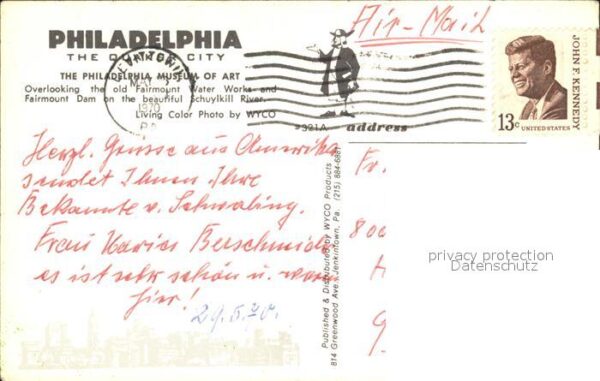 PHILADELPHIA
THE QUAKER CITY
THE PHILADELPHIA MUSEUM OF ART
Overlooking the old Fairmount Water Works and
Fairmount Dam on the beautiful Schuylkill River.
Living Color Photo by WYCO
MAY
1970
PA
9321A
address
Air-Mail
JOHN F. KENNEDY
13c
UNITED STATES
Herzl. Grüsse aus Amerika
sendet Ihnen Ihre
Bekannte v. Schwabing.
Frau
es ist sehr schön u. warm
hier!
29.5.70.
Published & Distributed by WYCO Products
814 Greenwood Ave., Jenkintown, Pa. (215) 884-6861
Fr.
800
privacy protection
Datenschutz